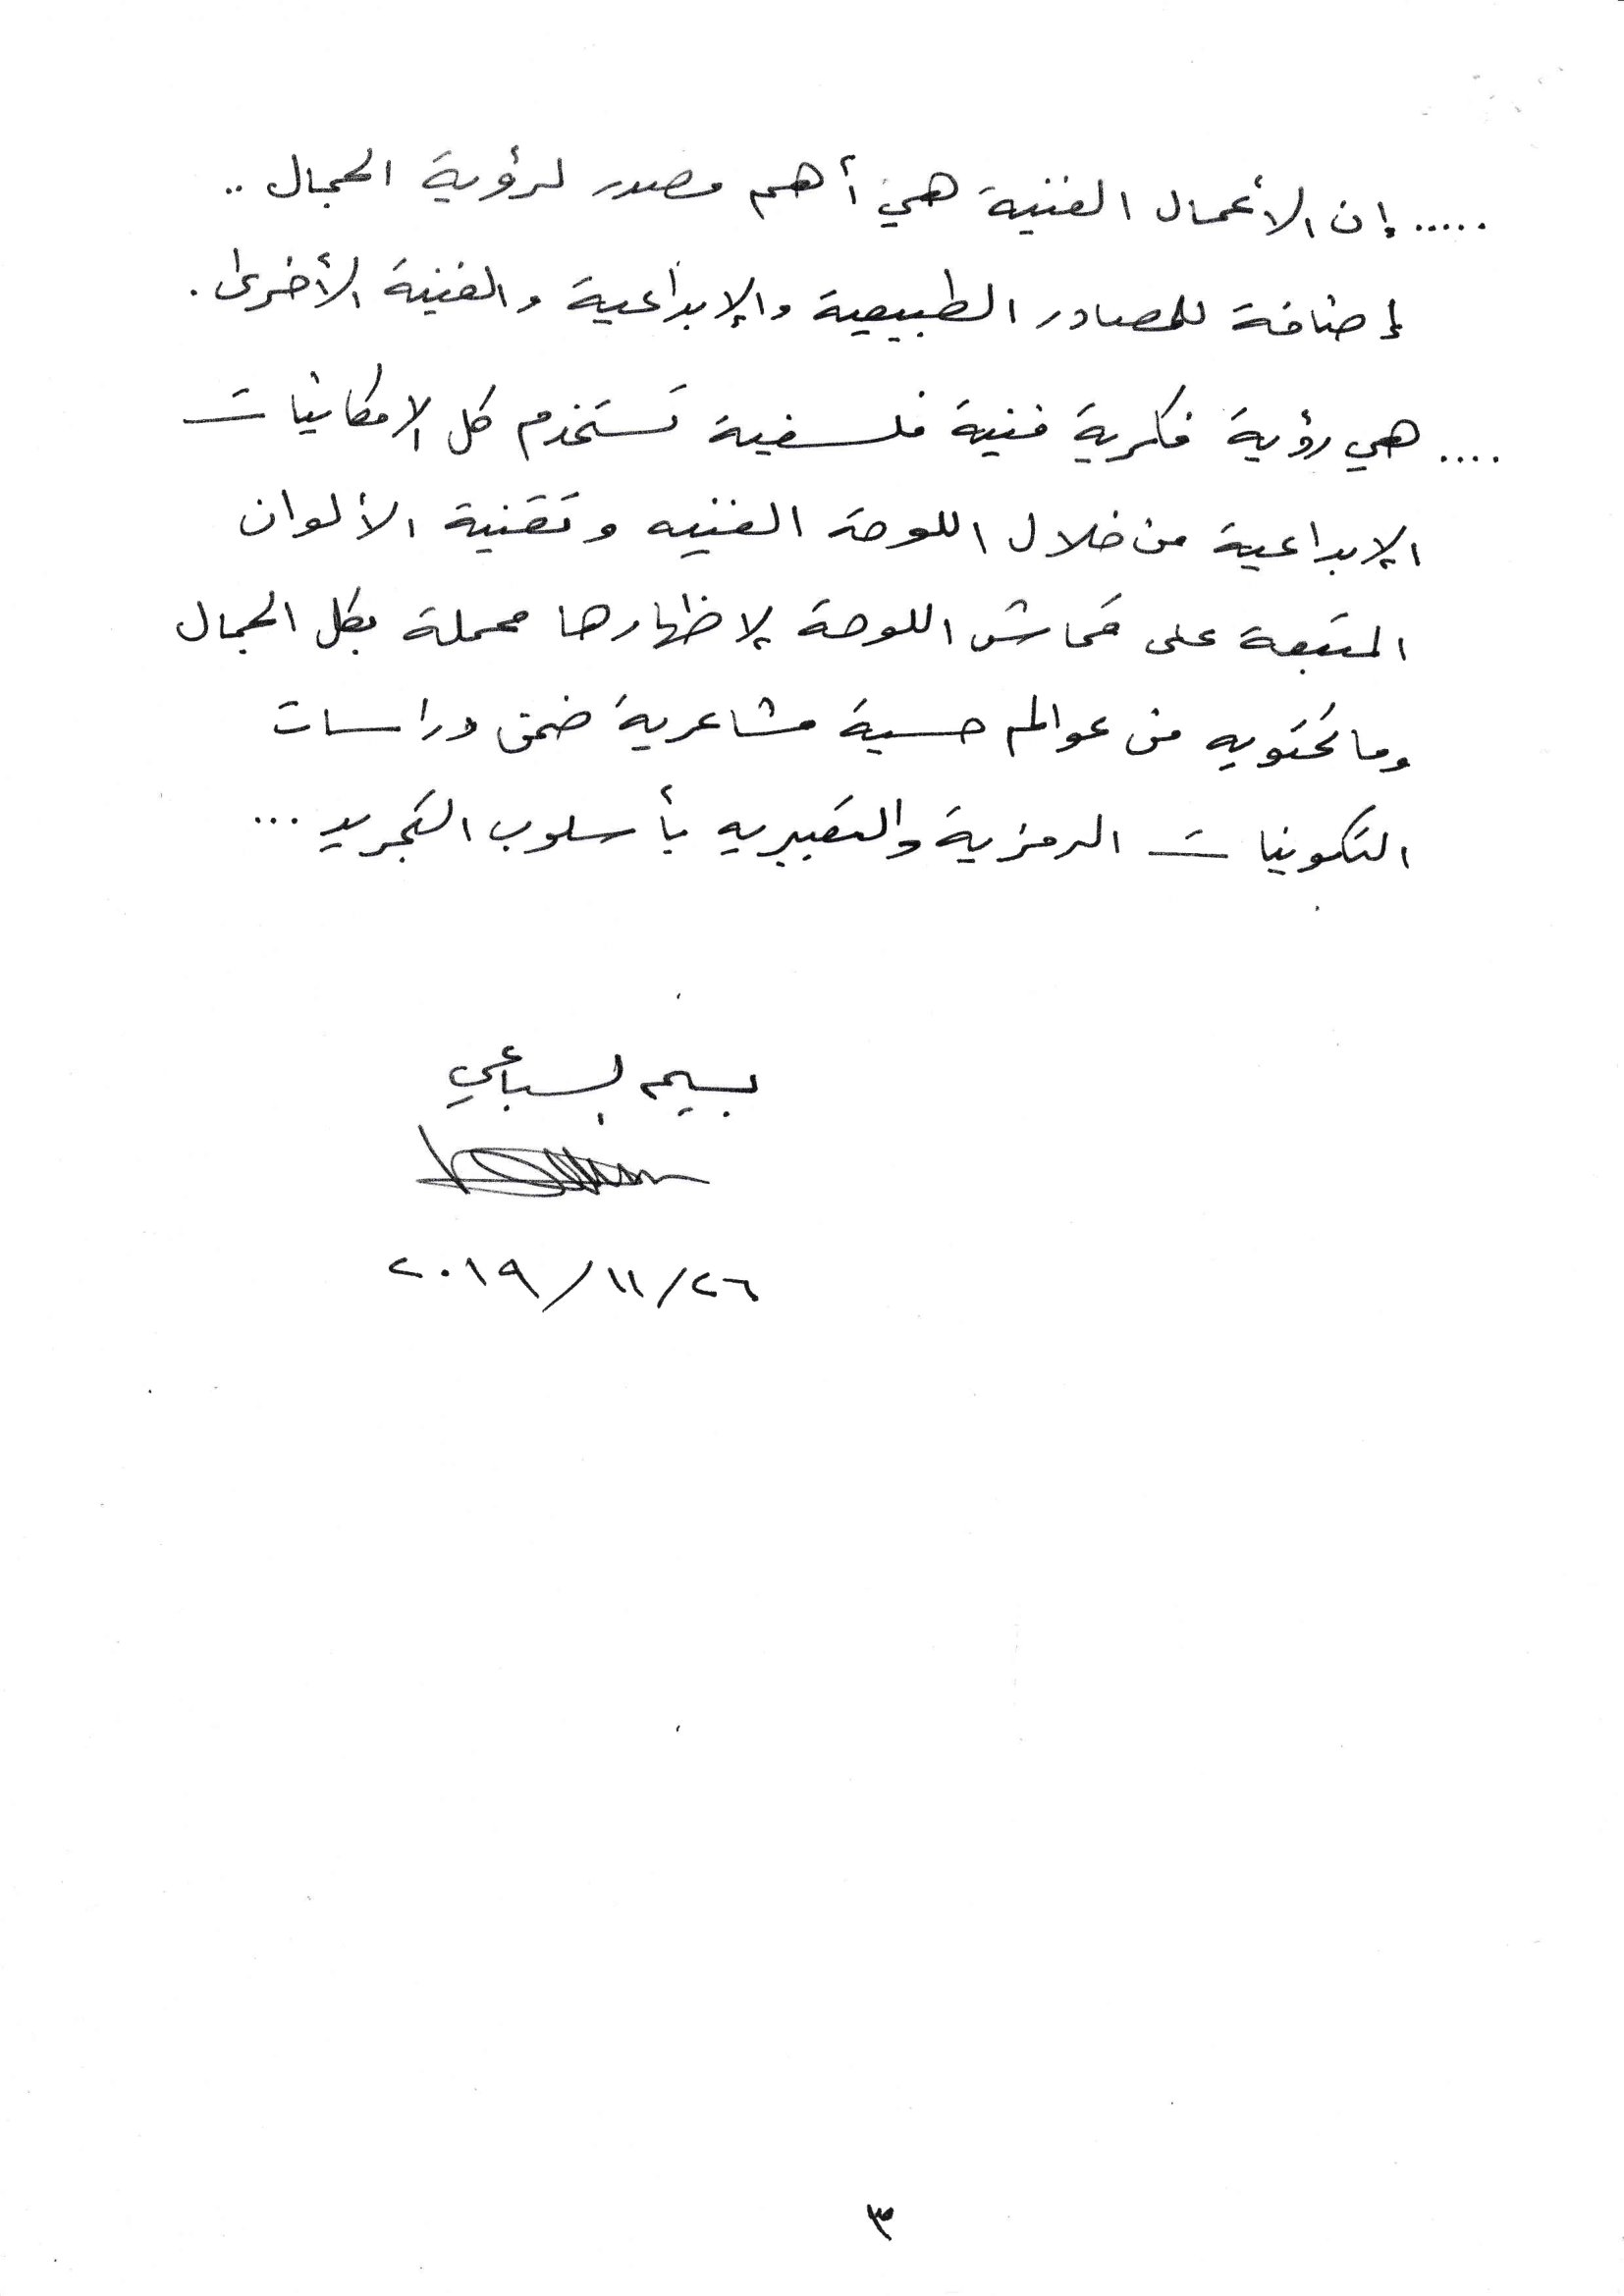 ..... إن الأعمال الفنية هي أهم مصدر لرؤية الجمال ..
إضافة للمصادر الطبيعية والإبداعية والفنية الأخرى .
.... هي رؤية فكرية فنية فلسفية تستخدم كل الامكانيات
الإبداعية من خلال اللوحة الفنيه وتقنية الألوان
المتبعة على قماش اللوحة لإظهارها محملة بكل الجمال
وما تحتويه من عوالم حسية مشاعرية ضمن دراسات
التكوينات الرمزية والتعبيريه بأسلوب التجريد ...
بسيم السباعي
٢٦/١١/٢٠١٩
٣